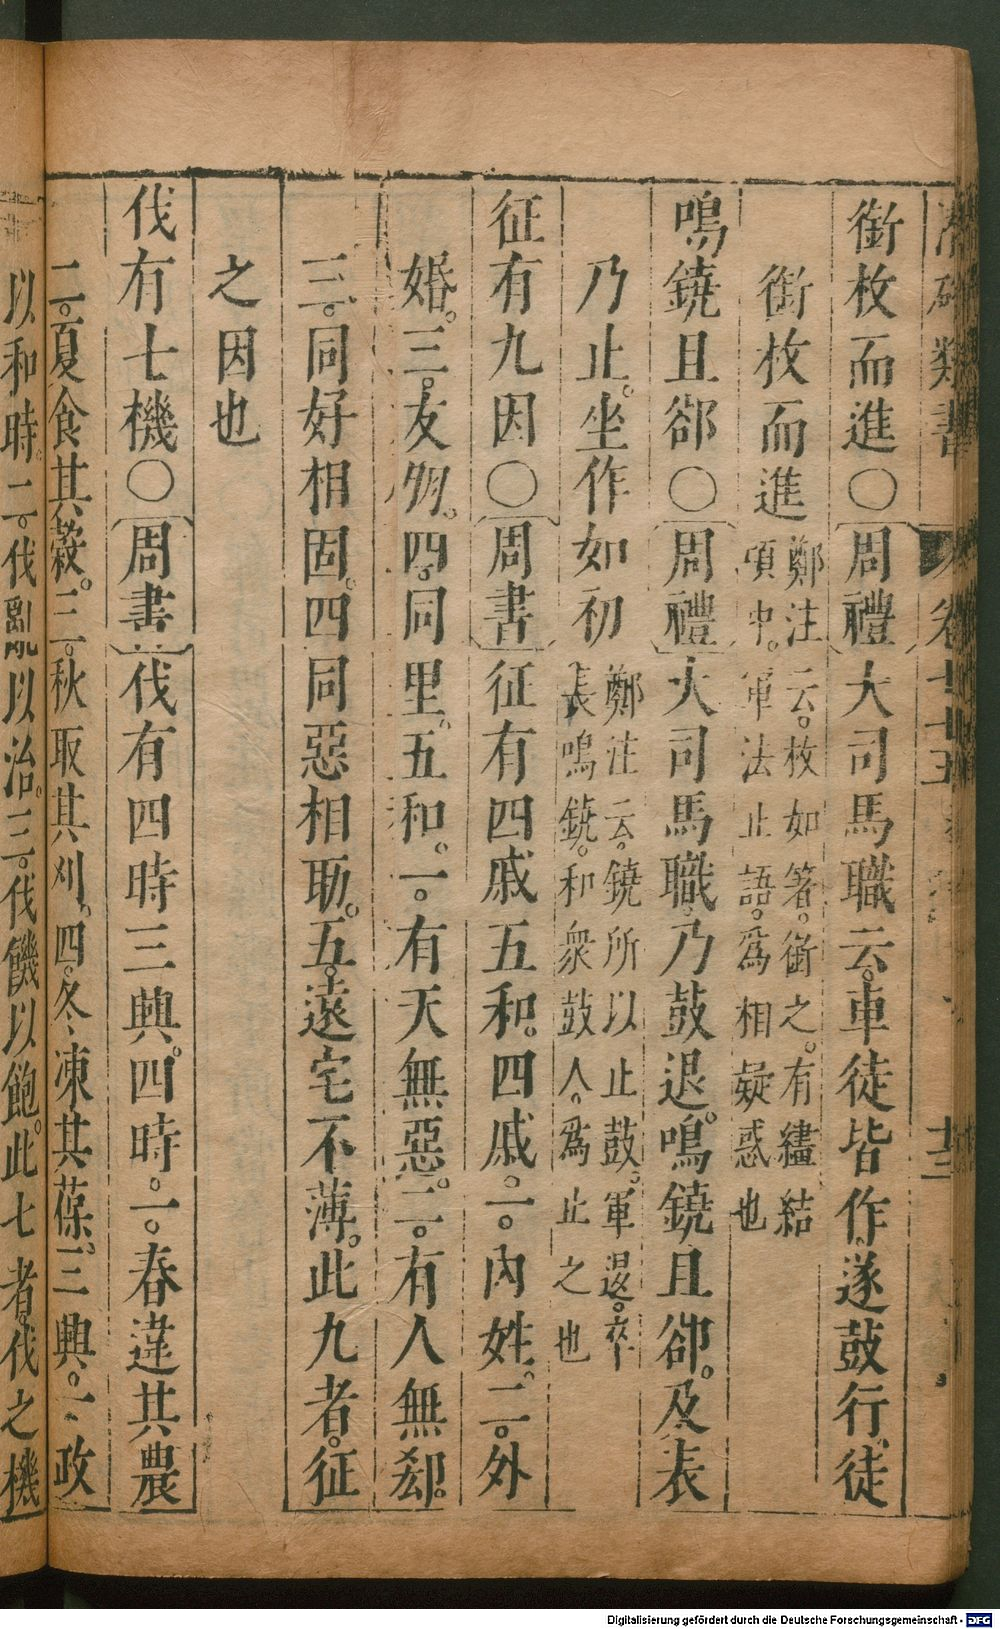 銜枚而進○周禮大司馬職云。車徒皆作。遂鼓行。徒
銜枚而進鄭注云。枚如箸。銜之。有繣結
項中。軍法止語。為相疑惑也
鳴鐃且郤○周禮大司馬職。乃鼓退。鳴鐃且郤。及表
乃止。坐作如初鄭注云。鐃所以止鼓。軍退。卒
長鳴鐃。和眾鼓人。為止之也
征有九因○周書征有四戚五和。四戚。一。內姓。二。外
婚。三。友朋。四。同里。五和。一。有天無惡。二。有人無郄。
三。同好相固。四同惡相助。五。遠宅不薄。此九者。征
之因也
伐有七機○周書伐有四時三興。四時。一。春違其農
二。夏食其穀。三。秋取其刈。四。冬凍其葆。三興。一、政
以和時。二。伐亂以治。三。伐饑以飽。此七者。伐之機
Digitalisierung gefördert durch die Deutsche Forschungsgemeinschaft - DFG